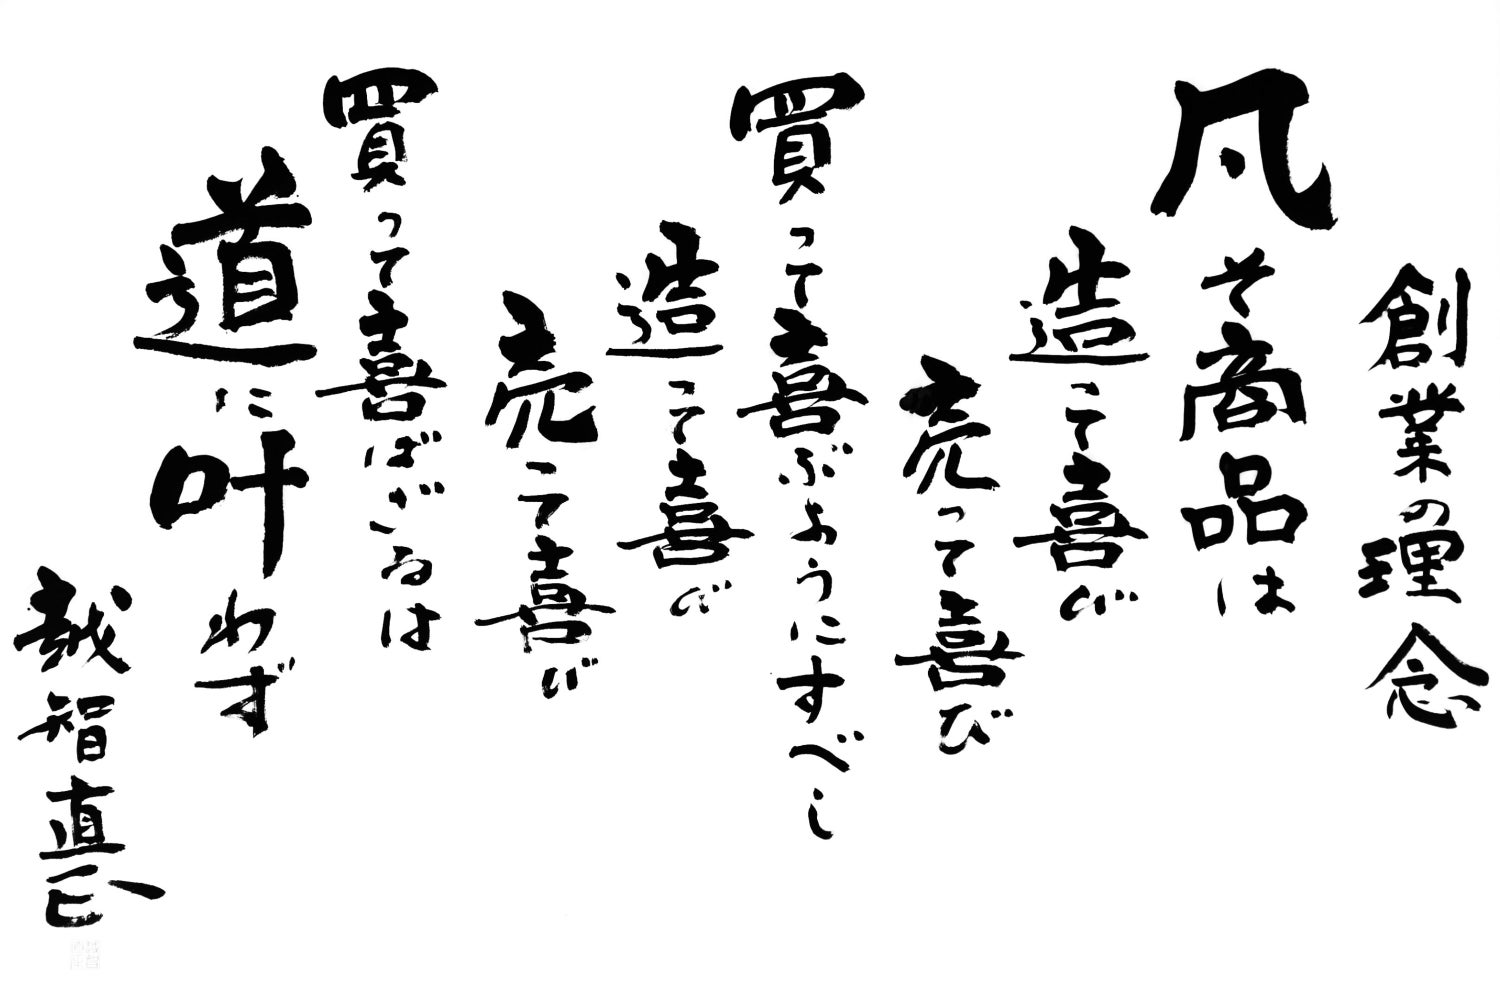 創業の理念
凡そ商品は
造って喜び
売って喜び
買って喜ぶようにすべし
造って喜び
売って喜び
買って喜ばざるは
道に叶わず
越智直正